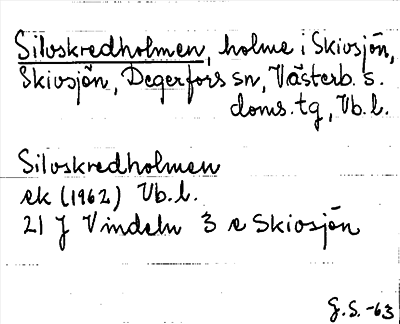 Silvskredholmen, holme i Skivsjön,
Skivsjön, Degerfors sn, Västerb. s.
doms. tg, Vb. l.
Silvskredholmen
ek (1962) Vb. l.
21 J Vindeln 3 e Skivsjön
G. S. -63